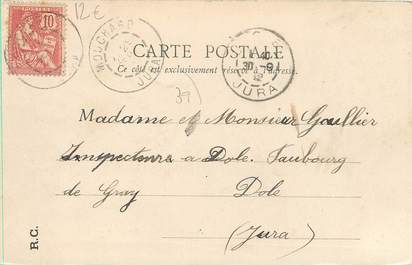 12€
10
POSTES
MOUCHARD
JURA
CARTE POSTALE
Ce côté est exclusivement réservé à l'adresse.
30
JURA
39
Madame et Monsieur Goullier
Inspecteur à Dole. Faubourg
de Gray Dole
(Jura)
R.C.